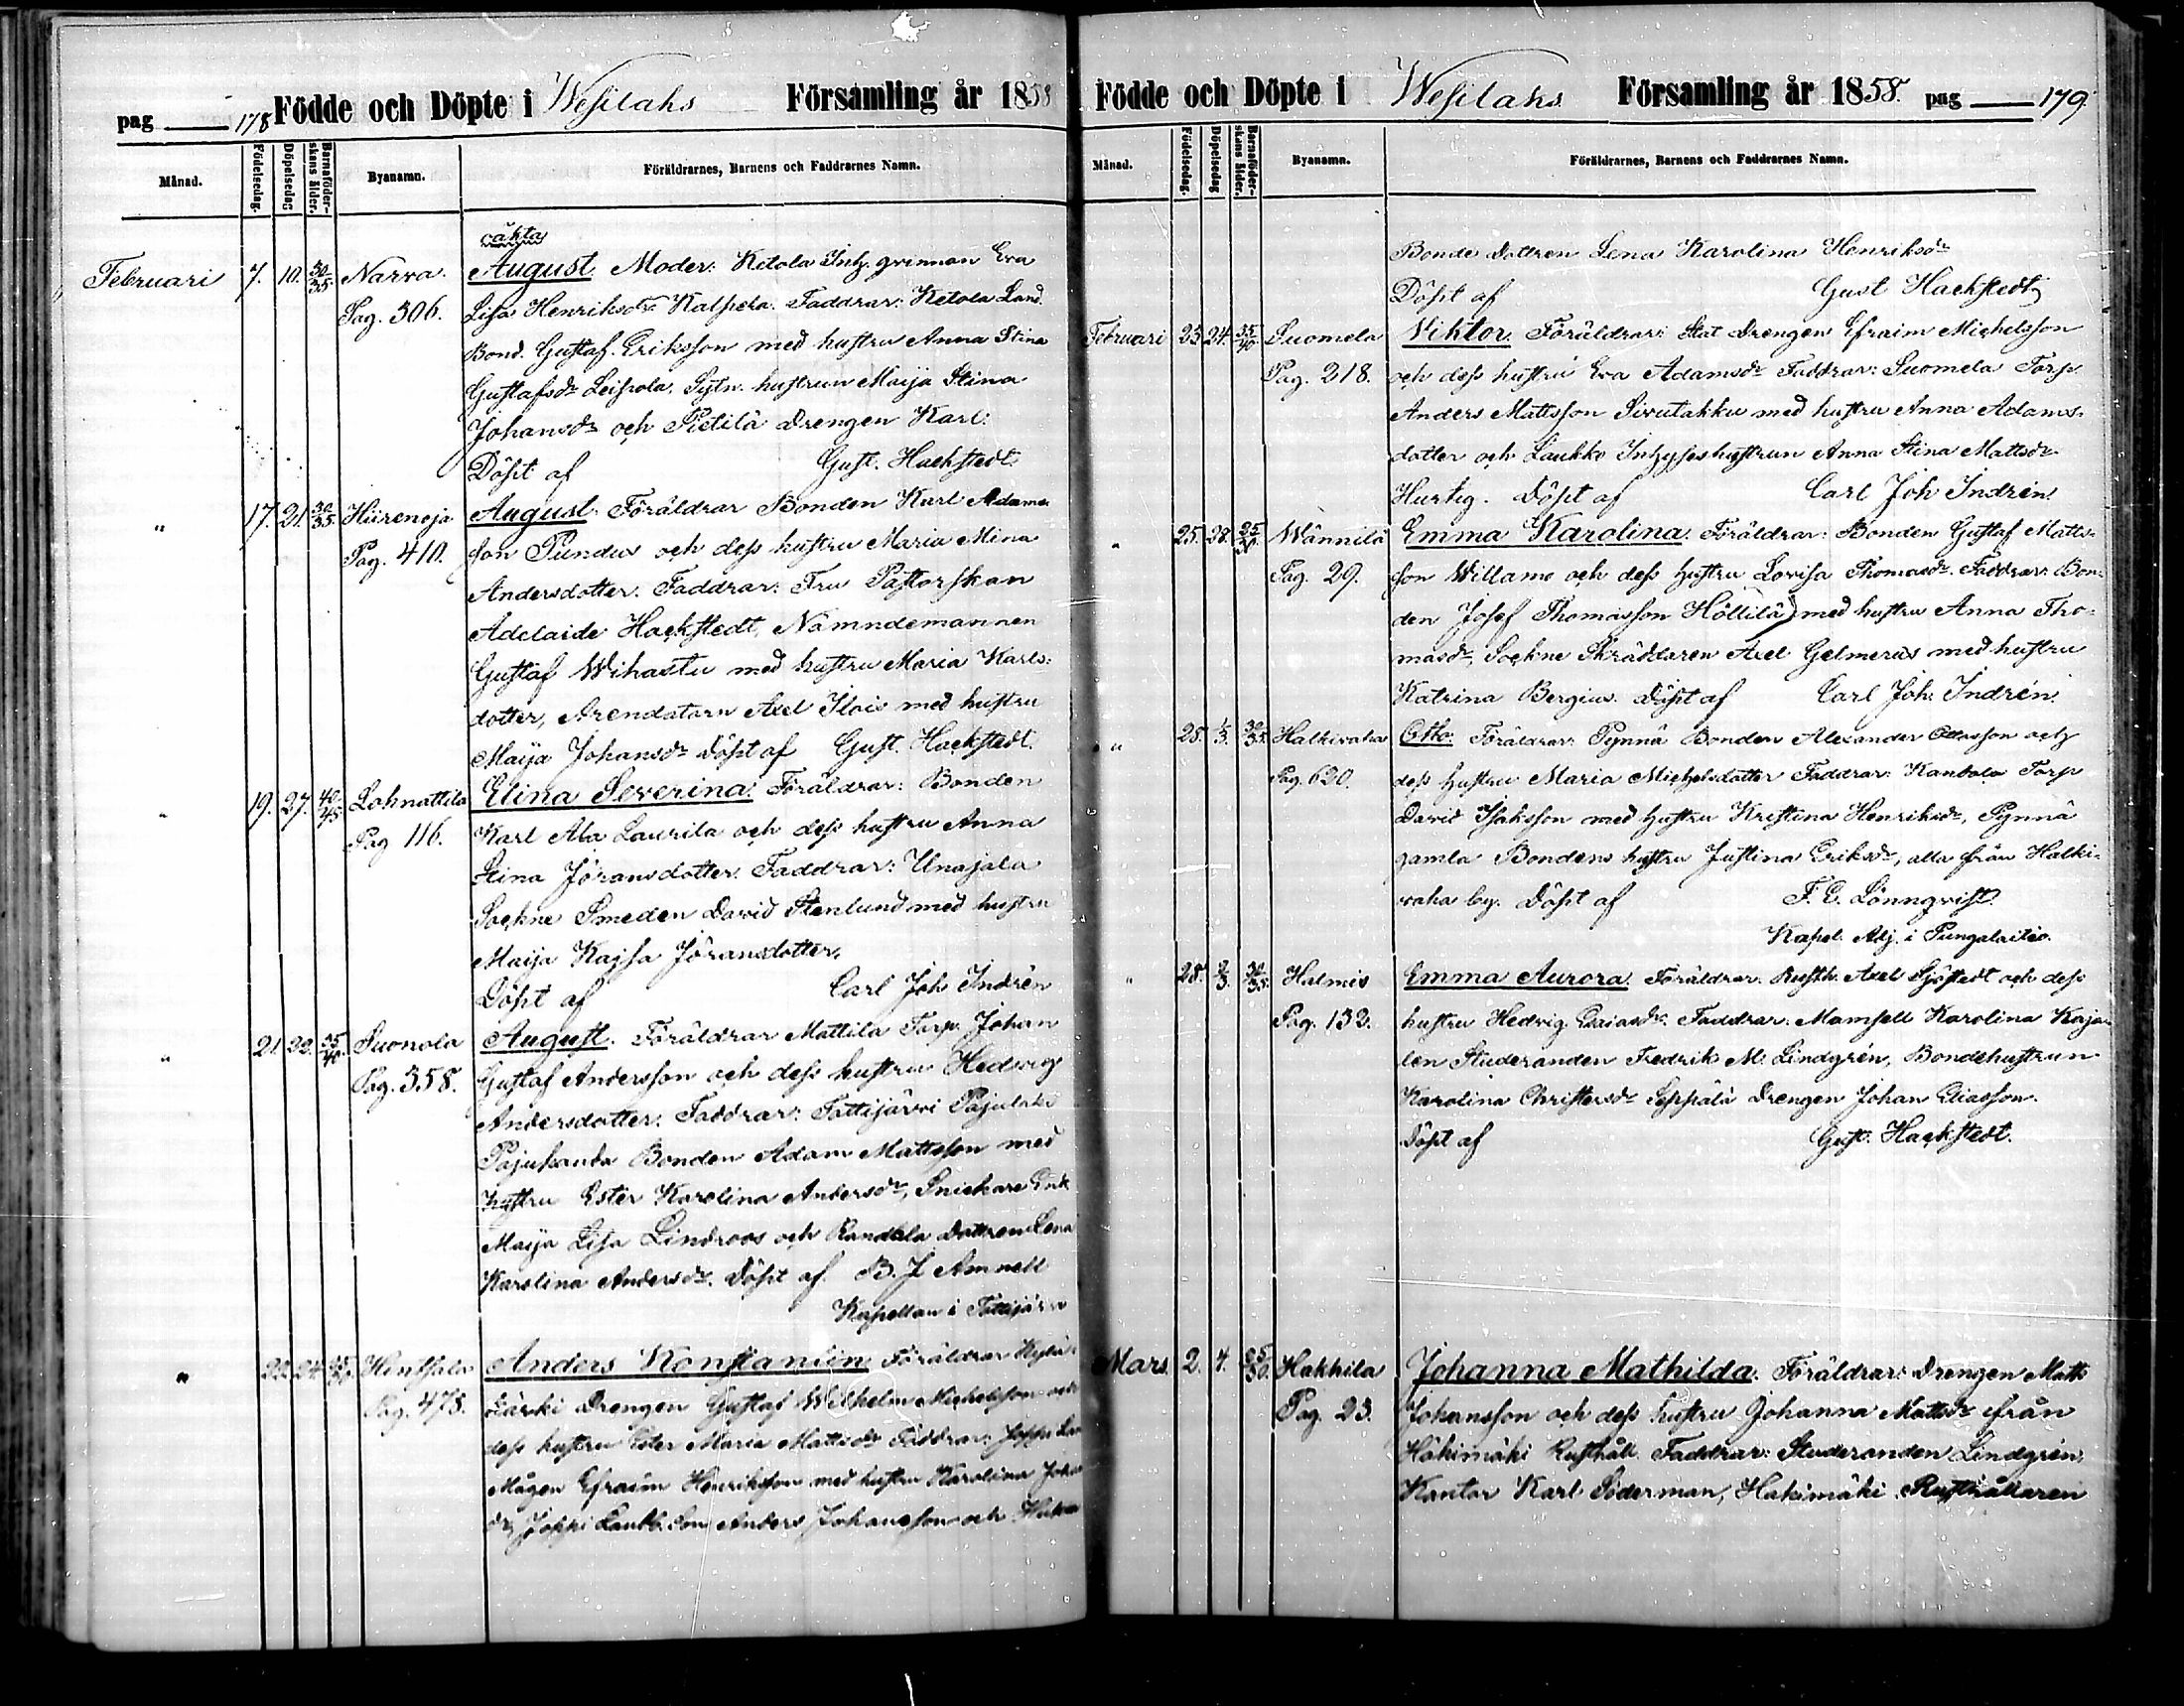 pag 178 Födde och Döpte i Wesilaks Församling år 1858
Månad. Födelsedag. Döpelsedag Barnaföderskans ålder. Byanamn. Föräldrarnes, Barnens och Faddrarnes Namn.
oäkta
Februari 7. 10. 30/35 Narva. August. Moder: Ketola Inh. qvinnan Eva
Pag. 306. Lisa Henriksdr Kalpera. Faddrar: Ketola Land.
Bond. Gustaf Eriksson med hustru Anna Stina
Gustafsdr Leipola, Sytn. hustrun Maija Stina
Johansdr och Pietilä Drengen Karl.
Döpt af Gust. Hackstedt.
" 17. 21. 30/35 Hiirenoja August. Föräldrar Bonden Karl Adams
Pag. 410. son Pundus och dess hustru Maria Mina
Andersdotter. Faddrar: Fru Pastorskan
Adelaide Hackstedt, Nämndemannen
Gustaf Wihastu med hustru Maria Karls-
dotter, Arendatorn Axel Ilois med hustru
Maija Johansdr Döpt af Gust. Hackstedt.
" 19. 27. 40/45 Lahnattila Elina Severina. Föräldrar: Bonden
Pag 116. Karl Ala Laurila och dess hustru Anna
Stina Jöransdotter. Faddrar: Unajala
Sockne Smeden David Stenlund med hustru
Maija Kajsa Jöransdotter.
Döpt af Carl Joh Indrén
" 21. 22. 35/40. Suonola August. Föräldrar Mattila Torp. Johan
Pag. 358. Gustaf Andersson och dess hustru Hedvig
Andersdotter. Faddrar: Tottijärvi Pajulaks
Pajukanda Bonden Adam Mattsson med
hustru Ester Karolina Andersdr, Snickare Enk
Maija Lisa Lindroos och Randala Dottren Lena
Karolina Andersdr. Döpt af B. J Amnell
Kapellan i Tottijärvi
" 22. 24. Hinsala Anders Konstantin Föräldrar
Pag. 478. Drengen Gustaf Wilhelm Michelsson och
dess hustru Ester Maria Mattsdr Faddrar: Joppi
Mågen Efraim Henriksson med hustru Karolina Johans
dr, Joppi Landb. Son Anders Johansson och
Födde och Döpte i Wesilaks Församling år 1858. pag 179.
Månad. Födelsedag. Döpelsedag Barnaföderskans ålder. Byanamn. Föräldrarnes, Barnens och Faddrarnes Namn.
Bonde dottren Lena Karolina Henriksdr
Döpt af Gust Hackstedt
Februari 23 24. 35/40 Suomela Viktor. Föräldrar: Stat Drengen Efraim Michelsson
Pag. 218. och dess hustru Eva Adamsdr Faddrar: Suomela Torp.
Anders Mattsson Sivutakku med hustru Anna Adams-
dotter och Laukko Inhyseshustrun Anna Stina Mattsdr
Hurtig. Döpt af Carl Joh Indrén
" 25. 28. 25/30 Wännilä Emma Karolina. Föräldrar: Bonden Gustaf Matts-
Pag. 29. son Willamo och dess hustru Lovisa Thomasdr. Faddrar: Bon-
den Josef Thomasson Höllilä med hustru Anna Tho-
masdr, Sockne Skräddaren Axel Gelmerus med hustru
Katrina Bergius. Döpt af Carl Joh. Indrén.
" 28. 1/3. 30/35. Halkivaha Otto. Föräldrar: Pynnä Bonden Alexander Ottosson och
Pag. 620. dess hustru Maria Michelsdotter Faddrar: Kantola Torp
David Isaksson med hustru Kristina Henriksdr, Pynnä
gamla Bondens hustru Justina Eriksdr, alla från Halki-
vaha by. Döpt af F. E. Lönnqvist.
Kapel. Adj. i Pungalaitio.
" 28. 2/3. 30/35. Halmis Emma Aurora. Föräldrar: Rusth. Axel Sjöstedt och dess
Pag. 132. hustru Hedvig Esaiasdr. Faddrar: Mamsell Karolina Kaja-
len Studeranden Fredrik M. Lindgrén, Bondehustrun
Karolina Christersdr Seppälä Drengen Johan Eliasson.
Döpt af Gust. Hackstedt.
Mars. 2. 4. 25/30. Hakkila Johanna Mathilda. Föräldrar: Drengen Matts
Pag. 23. Johansson och dess hustru Johanna Mattsdr från
Hakimäki Rusthåll. Faddrar: Studeranden Lindgrén,
Kantor Karl Söderman, Hakimäki Rusthållaren